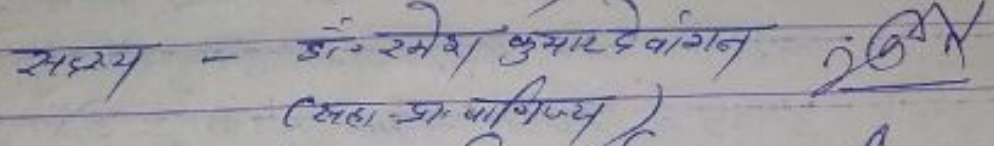 सदस्य - डॉ. रमेश कुमार देवांगन
(सहा. प्रा. वाणिज्य)